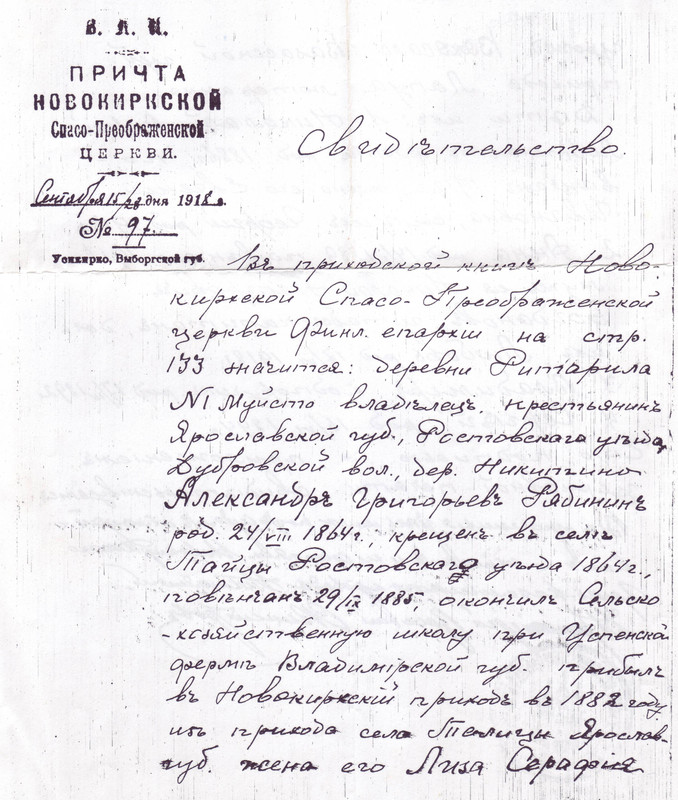 В. Л. И.
ПРИЧТА
НОВОКИРКСКОЙ
Спасо-Преображенской
ЦЕРКВИ.
Сентября 15/28 дня 1918 г.
№ 97.
Усикирко, Выборгской губ.
Свидѣтельство
Въ приходской книгѣ Ново-
киркской Спасо-Преображенской
церкви Финл. епархіи на стр.
133 значится: деревни Риттарила
№1 Муйсто владѣлецъ, крестьянинъ
Ярославской губ., Ростовскаго уѣзда,
Дубровской вол., дер. Никитино
Александръ Григорьевъ Рябининъ
род. 24/VIII 1864г. крещенъ въ селѣ
Ростовскаго уѣзда 1864г.,
повѣнчанъ 29/IX 1885, окончилъ Сельско
-хозяйственную школу при Успенской
фермѣ Владимірской губ. прибылъ
въ Новокиркскій приходъ въ 1882 году
изъ прихода села Ярослав-
губ. жена его Лиза Серафія